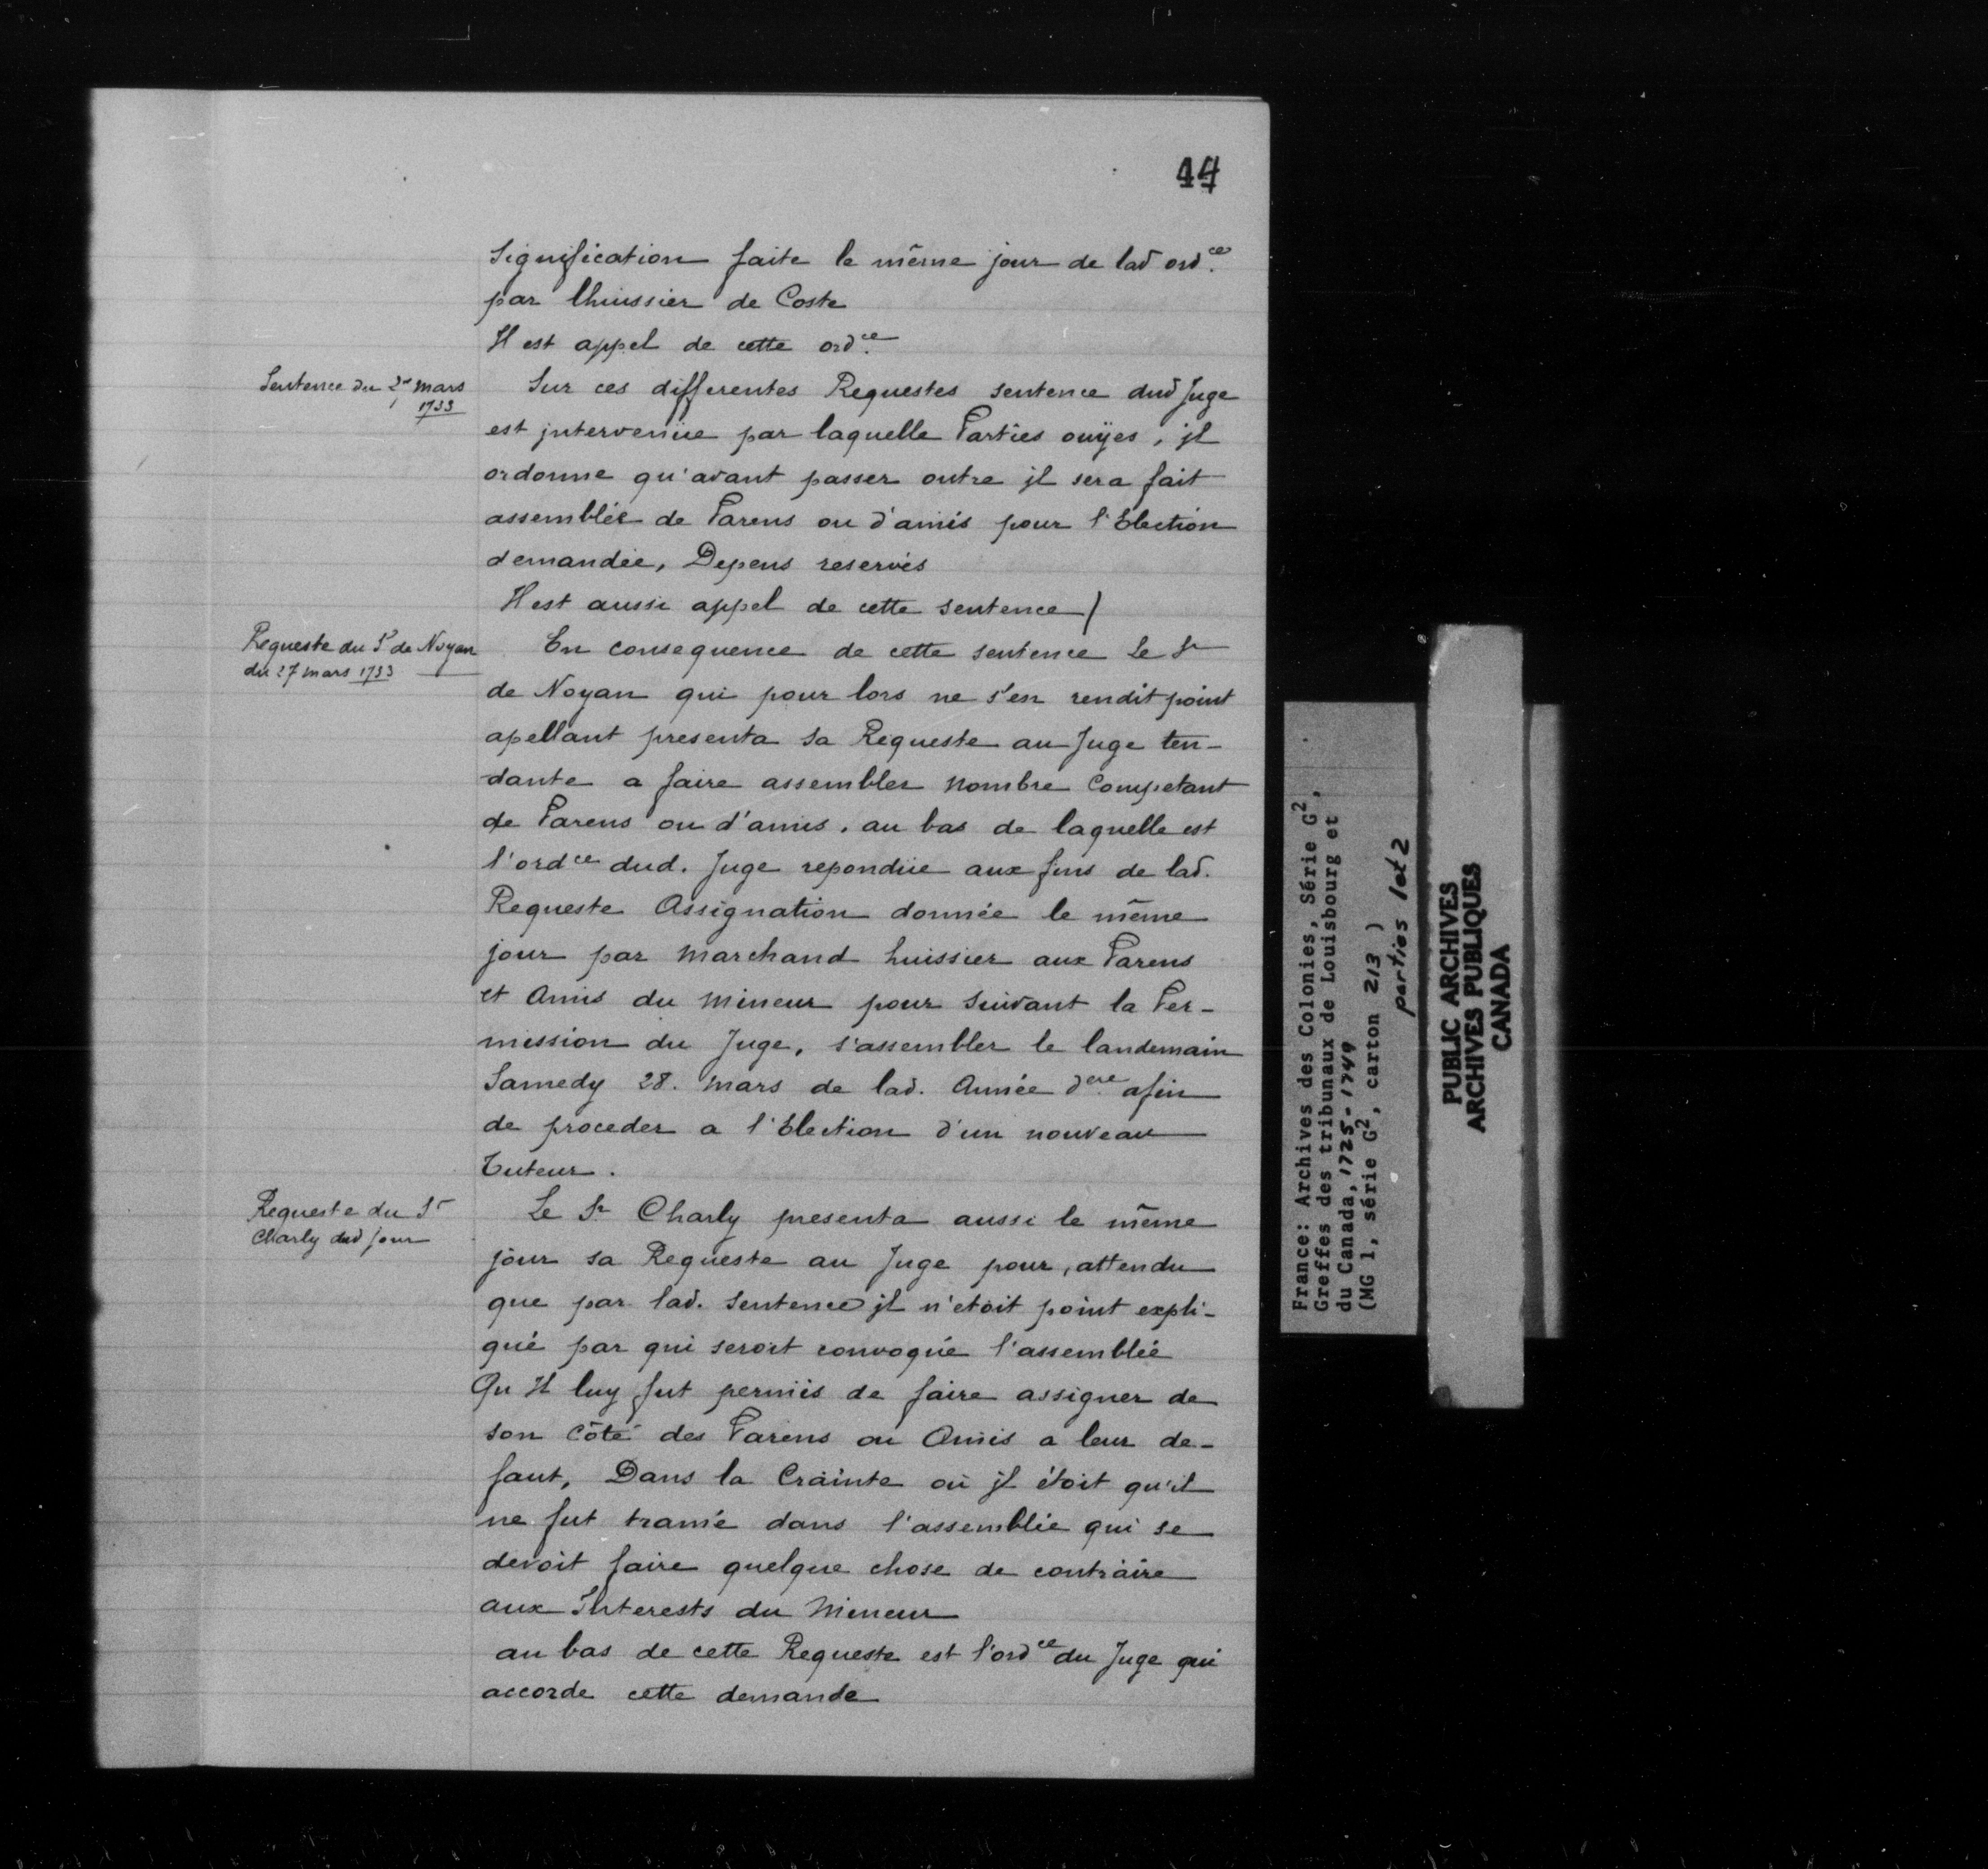 44
Signification faite le même jour de lad ord.ce
par lhuissier de Coste
Il est appel de cette ord.ce
Sentence du mars
1733
Sur ces differentes Requestes sentence dud Juge
est jntervenüe par laquelle Parties ouÿes, jl
ordonne qu'avant passer outre jl sera fait
assemblée de Parens ou d'amis pour l'Election
demandée, Depens reservés
Il est aussi appel de cette sentence /
Requeste du Sr de Noyan
du 27 mars 1733
En consequence de cette sentence Le Sr
de Noyan qui pour lors ne s'en rendit point
apellant presenta sa Requeste au Juge ten-
dante a faire assembler nombre Competant
de Parens ou d'amis. au bas de laquelle est
l'ordce dud. Juge repondüe aux fins de lad.
Requeste Assignation donnée le même
jour par Marchand huissier aux Parens
et Amis du Mineur pour suivant la Per-
mission du Juge, s'assembler le landemain
Samedy 28. Mars de lad. Année d.ere afin
de proceder a l'Election d'un nouveau
Tuteur.
Requeste du Sr
Charly dud jour
Le Sr Charly presenta aussi le même
jour sa Requeste au Juge pour, attendu
que par lad. Sentence jl n'etoit point expli-
qué par qui seroit convoquée l'assemblée
Qu Il luy fut permis de faire assigner de
son Côté des Parens ou Amis a leur de-
faut, Dans la Crainte où jl étoit qu'il
ne fut tramé dans l'assemblée qui se
devoit faire quelque chose de contraire
aux Interests du Mineur
au bas de cette Requeste est l'ordce du Juge qui
accorde cette demande
France: Archives des Colonies, Série G2,
Greffes des tribunaux de Louisbourg et
du Canada, 1725-1749
(MG 1, série G2, carton 213)
parties 1 et 2
PUBLIC ARCHIVES
ARCHIVES PUBLIQUES
CANADA